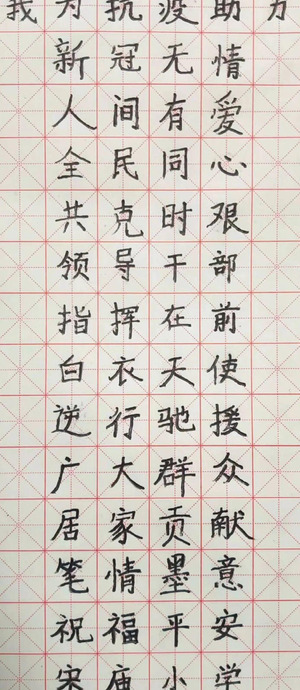 我为抗疫助力
新冠无情
人间有爱
全民同心
共克时艰
领导干部
指挥在前
白衣天使
逆行驰援
广大群众
居家贡献
笔情墨意
祝福平安
宋庙小学